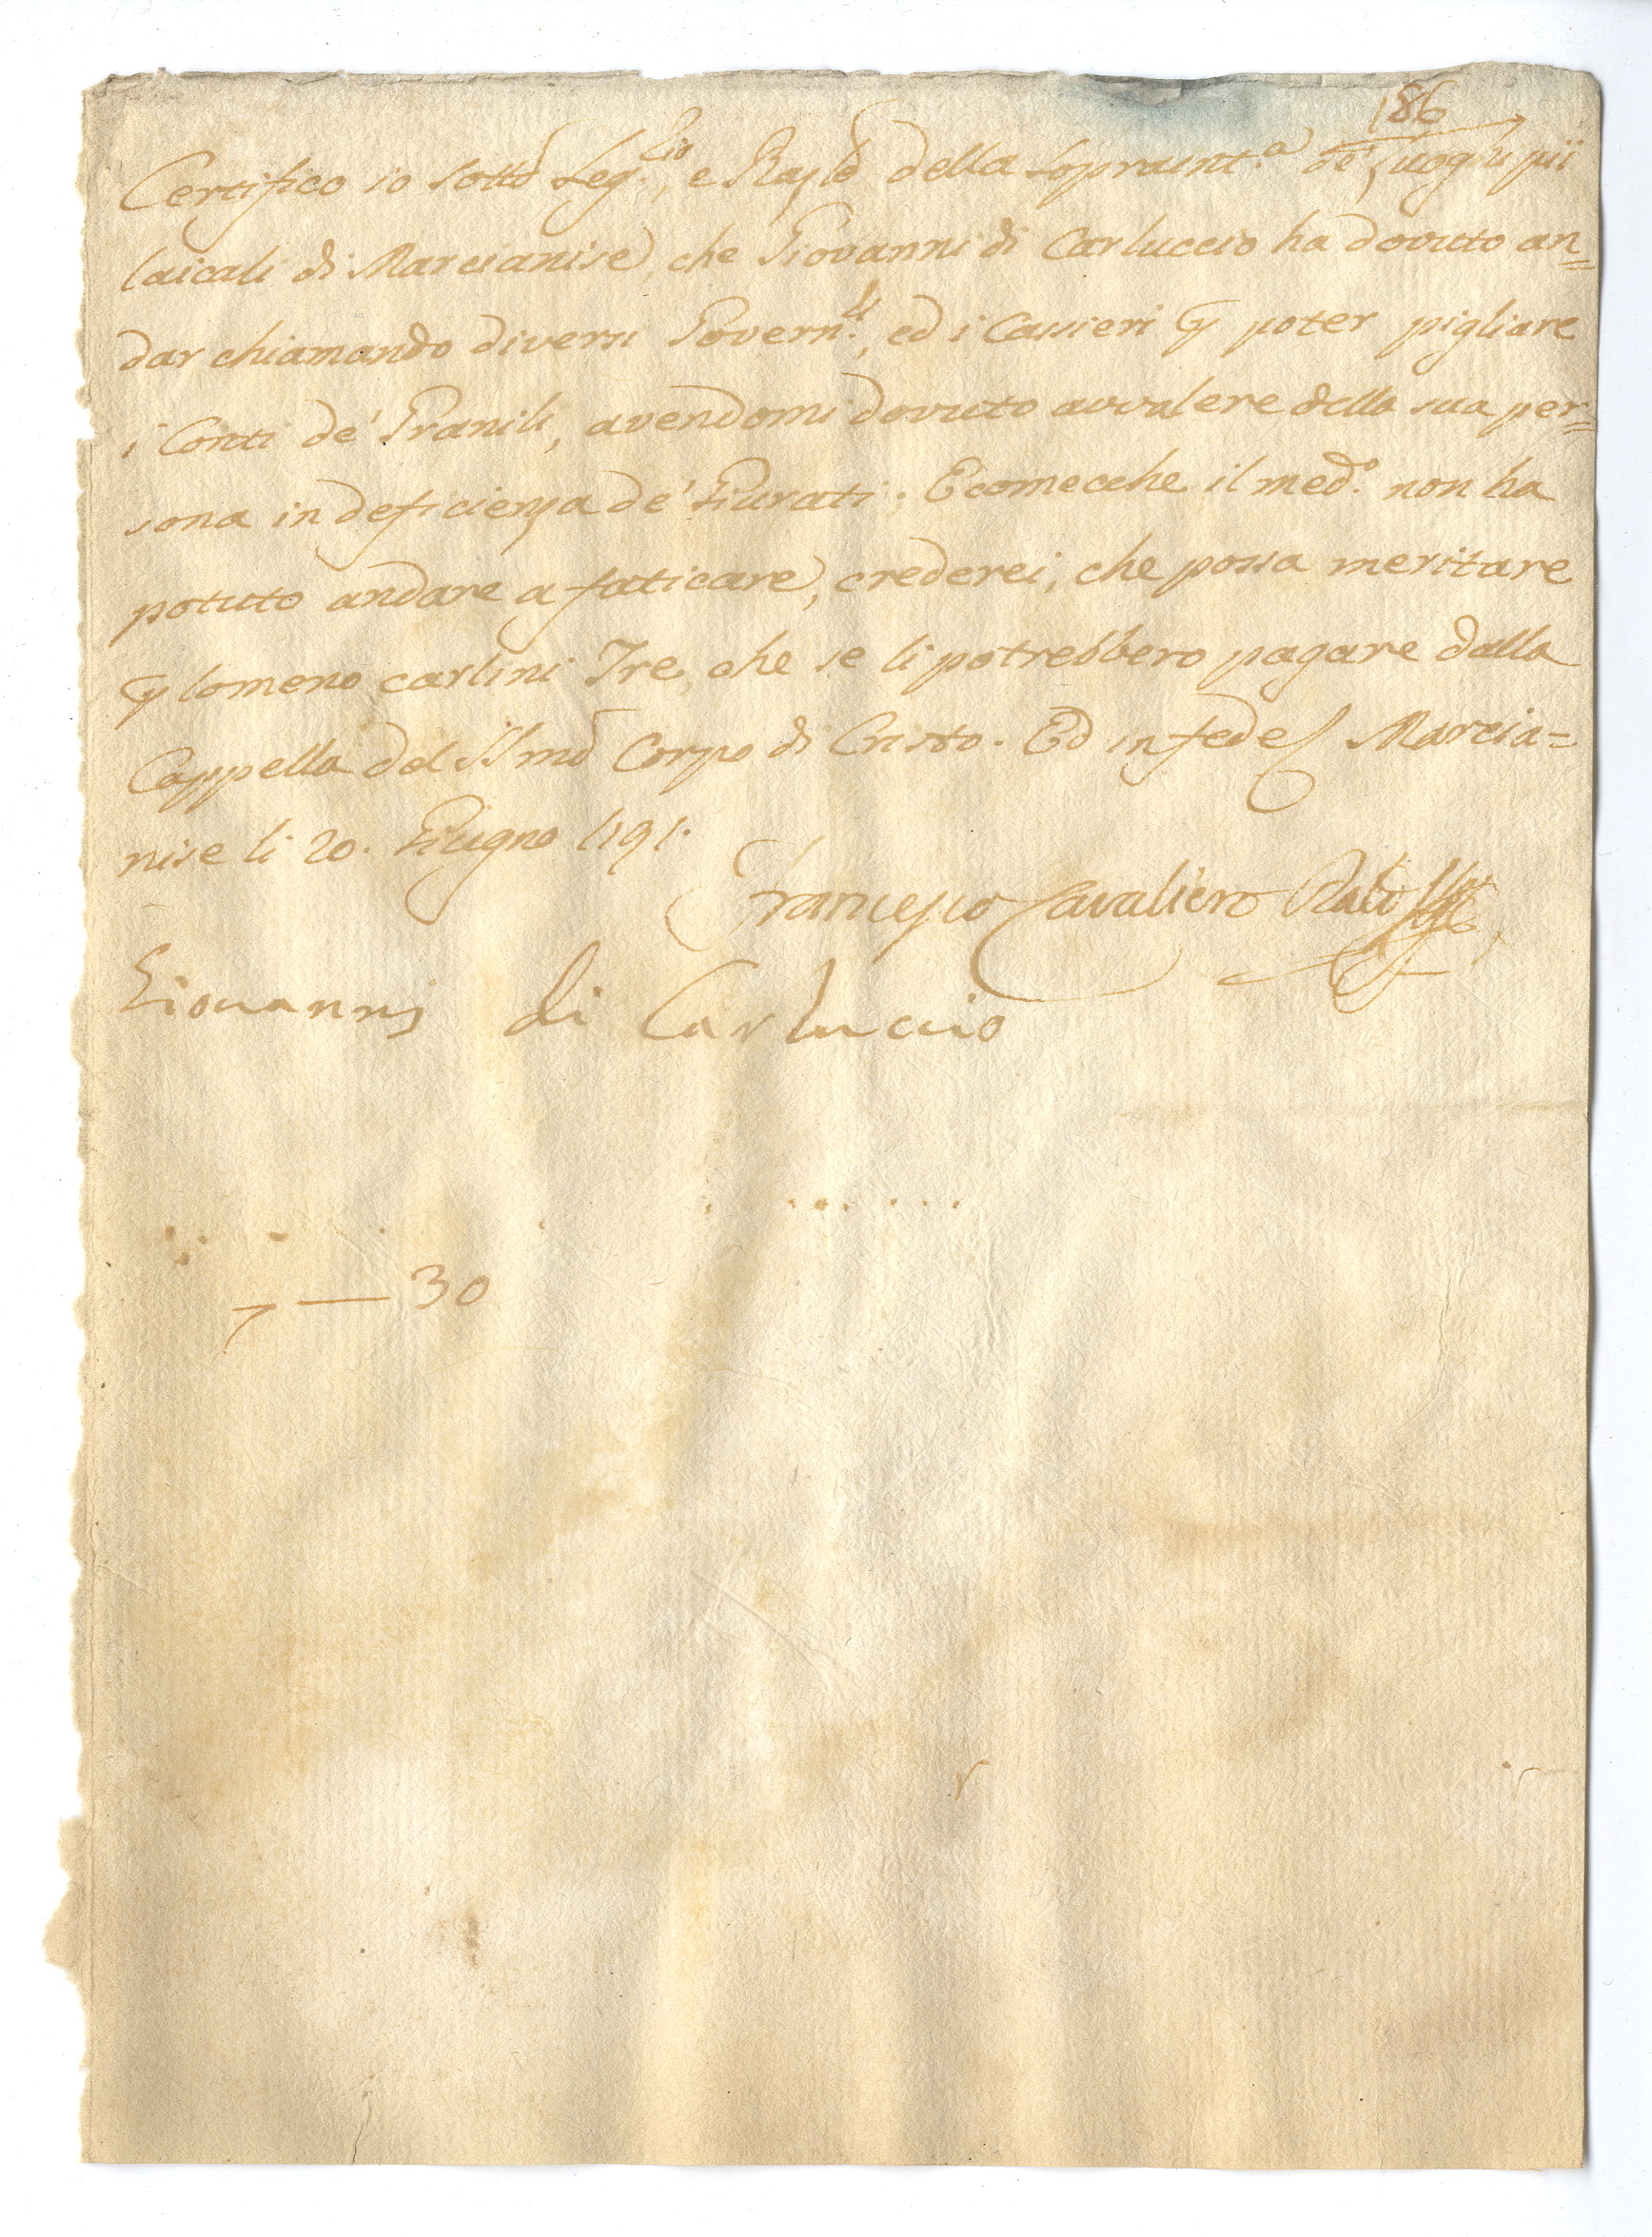 186
Certifico io sotto Seg.rio, e Raz.le della sopraint.a de' luoghi pii
laicali di Marcianise, che Giovanni di Carluccio ha dovuto an=
dar chiamando diversi Govern.ti, ed i Cassieri p poter pigliare
i Conti de' Granili, avendomi dovuto avvalere della sua per=
sona in deficienza de' Giurati; E comecche il med.o non ha
potuto andare a faticare, crederei, che possa meritare
p lomeno carlini Tre, che se li potrebbero pagare dalla
Cappella del SSmo Corpo di Cristo. Ed in fede Marcia=
nise li 20. Giugno 1791.
Francesco Cavaliero
Giovanni di Carluccio
— 30